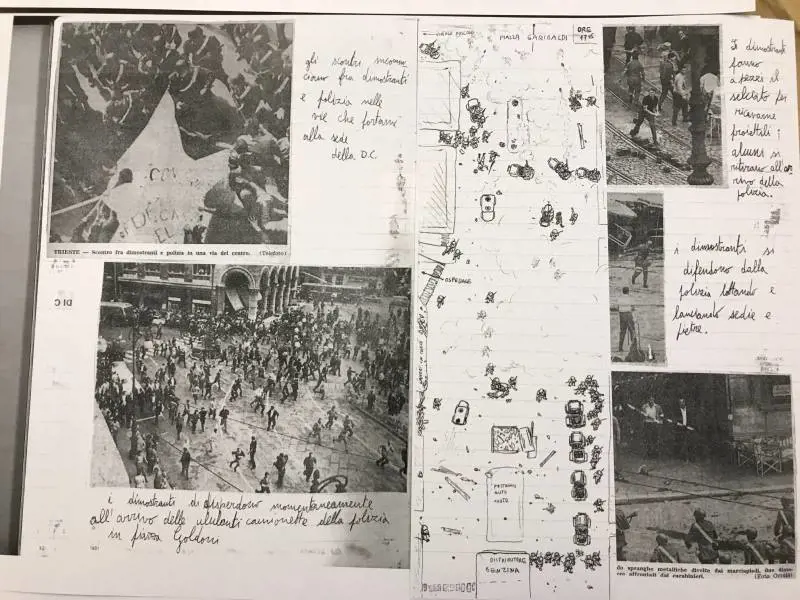 gli scontri incomin
ciano fra dimostranti
e polizia nelle
vie che portano
alla sede
della D.C.
TRIESTE — Scontro fra dimostranti e polizia in una via del centro. (Telefoto)
DIC
i dimostranti si disperdono momentaneamente
all'arrivo delle ululanti camionette della polizia
in piazza Goldoni
PIAZZA GARIBALDI
ORE
OSPEDALE
PESTAGGIO
AUTO
DISTRIBUTORE
BENZINA
I dimostranti
fanno
a pezzi il
selciato per
ricavarne
proiettili;
alcuni si
ritirano all'ar
rivo della
polizia.
i dimostranti si
difendono dalla
polizia lottando e
lanciando sedie e
pietre.
do spranghe metalliche divelte dai marciapiedi, due
affrontati dai carabinieri.